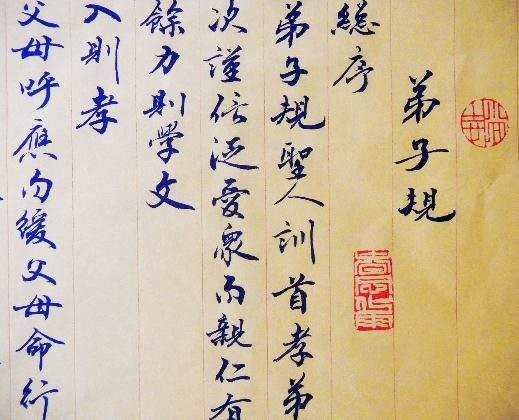 弟子規
總序
弟子規聖人訓首孝弟
次謹信泛愛眾而親仁有
餘力則學文
入則孝
父母呼應勿緩父母命行